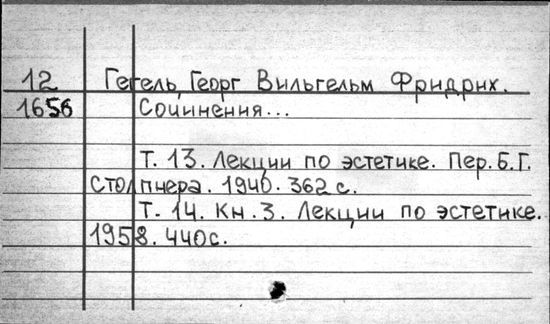 12 Гегель, Георг Вильгельм Фридрих.
1656 Сочинения...
Т. 13. Лекции по эстетике. Пер. Б.Г.
Столпнера. 1940. 362 с.
Т. 14. Кн. 3. Лекции по эстетике.
1958. 440с.